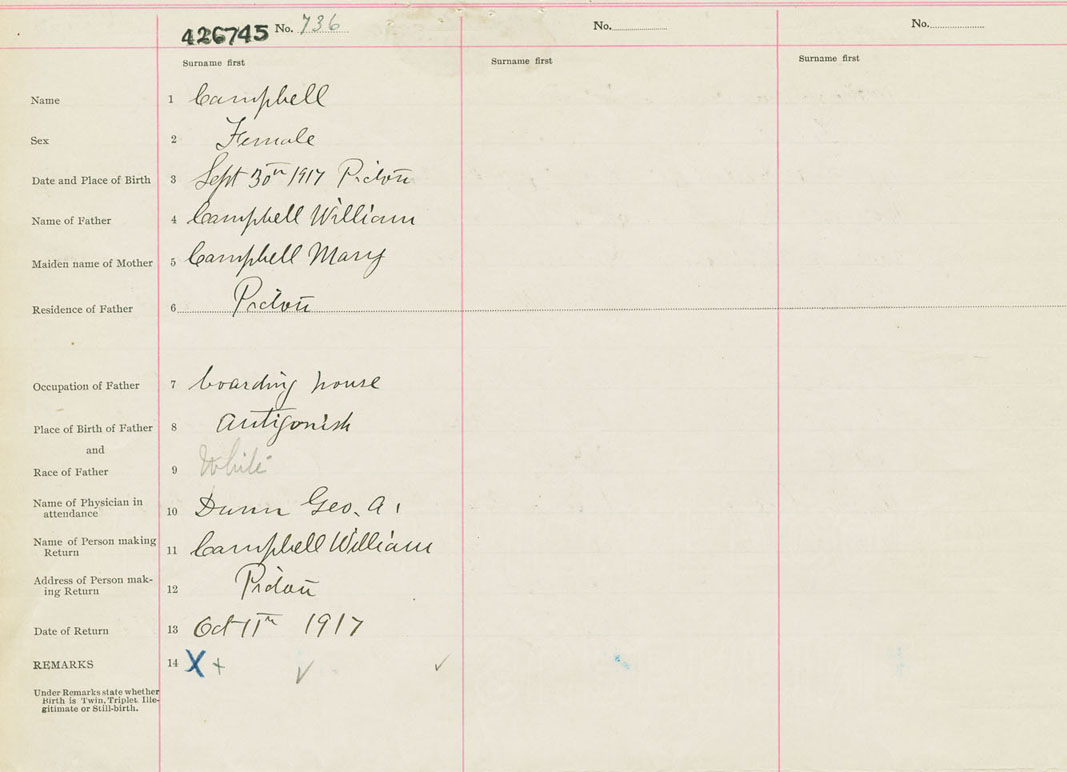 426745 No. 736 No. No.
Surname first Surname first Surname first
Name 1 Campbell
Sex 2 Female
Date and Place of Birth 3 Sept 30th 1917 Pictou
Name of Father 4 Campbell William
Maiden name of Mother 5 Campbell Mary
Residence of Father 6 Pictou
Occupation of Father 7 boarding house
Place of Birth of Father 8 Antigonish
and
Race of Father 9 White
Name of Physician in
attendance 10 Dunn Geo. A.
Name of Person making
Return 11 Campbell William
Address of Person mak-
ing Return 12 Pictou
Date of Return 13 Oct 11th 1917
REMARKS 14 X + ✓ ✓
Under Remarks state whether
Birth is Twin, Triplet, Ille-
gitimate or Still-birth.